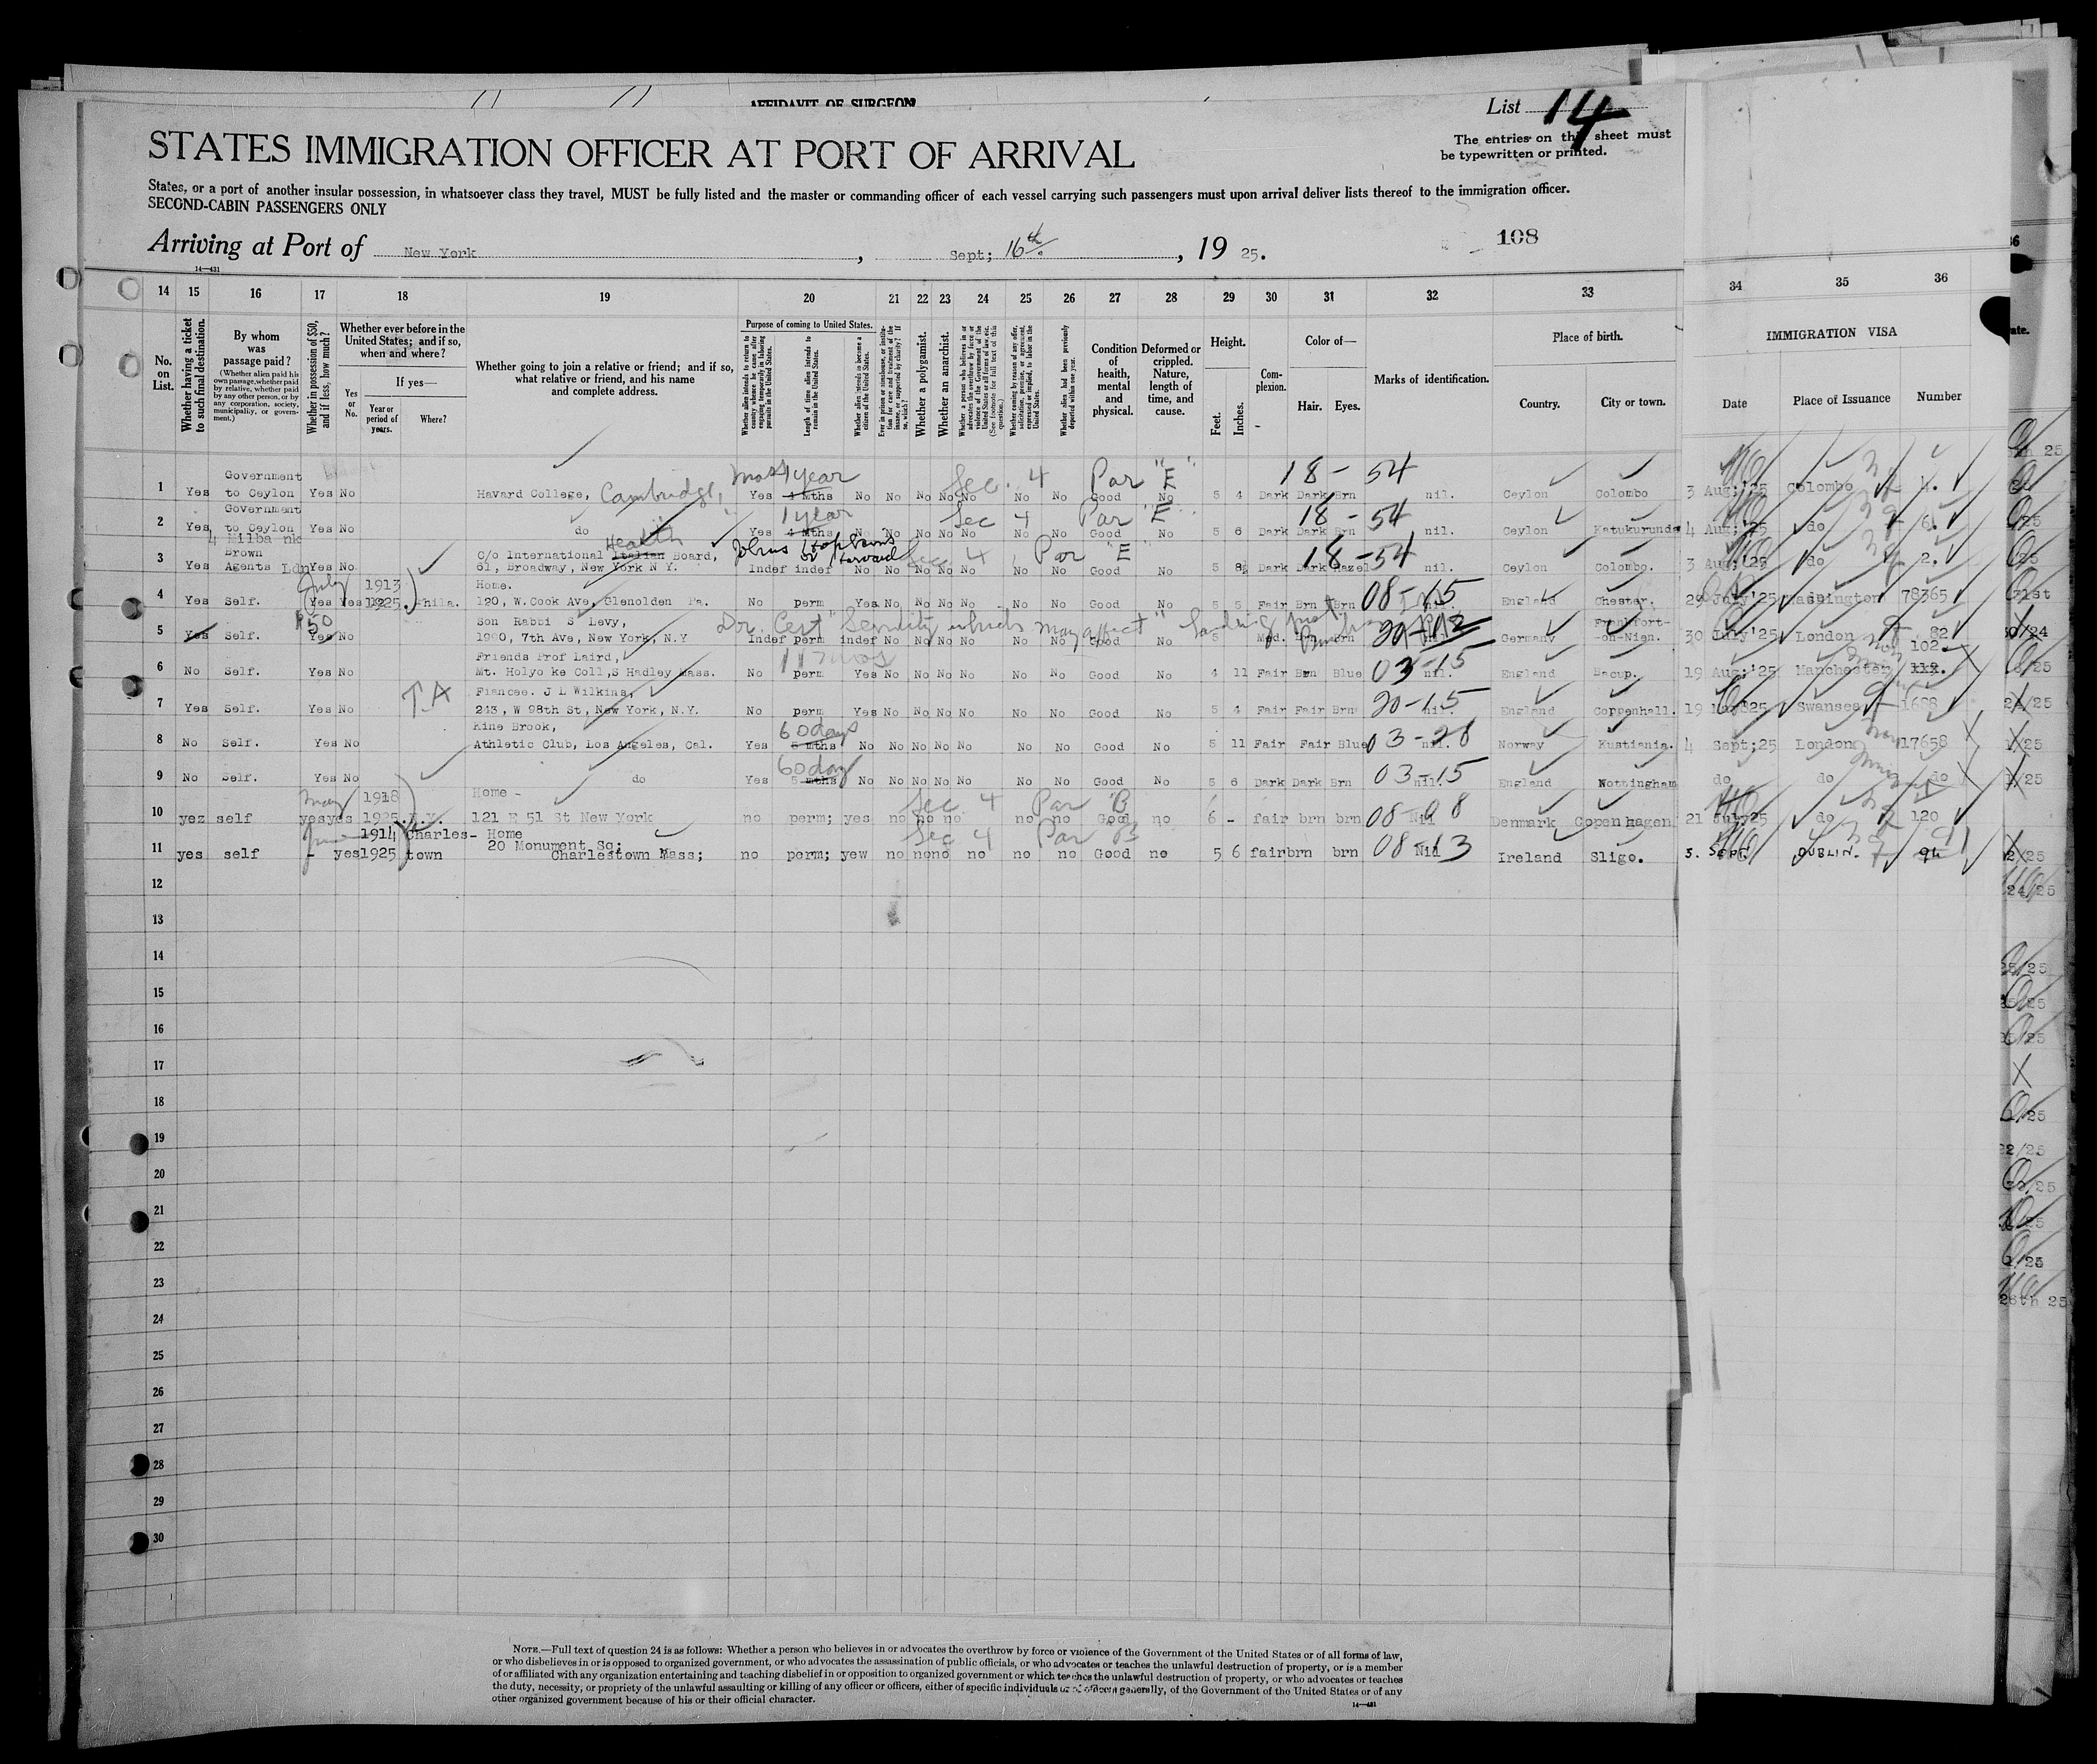 AFFIDAVIT OF SURGEON
List 14
The entries on this sheet must
be typewritten or printed.
STATES IMMIGRATION OFFICER AT PORT OF ARRIVAL
States, or a port of another insular possession, in whatsoever class they travel, MUST be fully listed and the master or commanding officer of each vessel carrying such passengers must upon arrival deliver lists thereof to the immigration officer.
SECOND-CABIN PASSENGERS ONLY
Arriving at Port of New York, Sept; 16th, 19 25.
108
14—431
14 15 16 17 18 19 20 21 22 23 24 25 26 27 28 29 30 31 32 33 34 35 36
No. on List.
Whether having a ticket to such final destination.
By whom was passage paid?
(Whether alien paid his own passage, whether paid by relative, whether paid by any other person, or by any corporation, society, municipality, or government.)
Whether in possession of $50, and if less, how much?
Whether ever before in the United States; and if so, when and where?
Yes or No.
If yes—
Year or period of years.
Where?
Whether going to join a relative or friend; and if so, what relative or friend, and his name and complete address.
Purpose of coming to United States.
Whether alien intends to return to country whence he came after engaging temporarily in laboring pursuits in the United States.
Length of time alien intends to remain in the United States.
Whether alien intends to become a citizen of the United States.
Ever in prison or almshouse, or institution for care and treatment of the insane, or supported by charity? If so, which?
Whether a polygamist.
Whether an anarchist.
Whether a person who believes in or advocates the overthrow by force or violence of the Government of the United States or all forms of law, etc. (See footnote for full text of this question.)
Whether coming by reason of any offer, solicitation, promise, or agreement, expressed or implied, to labor in the United States.
Whether alien had been previously deported within one year.
Condition of health, mental and physical.
Deformed or crippled. Nature, length of time, and cause.
Height.
Feet.
Inches.
Complexion.
Color of—
Hair.
Eyes.
Marks of identification.
Place of birth.
Country.
City or town.
IMMIGRATION VISA
Date
Place of Issuance
Number
Government 1 year Sec. 4 Par "E" 18 - 54
1 Yes to Ceylon Yes No Havard College, Cambridge, Yes 4 Mths No No No No No No No Good No 5 4 Dark Dark Brn nil. Ceylon Colombo 3 Aug;'25 Colombo 4.
Government 1 year Sec 4 Par "E" 18 - 54
2 Yes to Ceylon Yes No do Yes 4 Mths No No No No No No No Good No 5 6 Dark Dark Brn nil. Ceylon Katukurunda 4 Aug;'25 do 6.
4 Milba nk Health Johns Hopkins Sec 4 Par "E" 18 - 54
Brown C/o International Italian Board,
3 Yes Agents Ldn Yes No 61, Broadway, New York N Y. Indef indef No No No No No No No Good No 5 8½ Dark Dark Hazel nil. Ceylon Colombo. 3 Aug;'25 do 2.
July 1913 Home. 08-15
4 Yes Self. Yes Yes 1925. Phila. 120, W.Cook Ave, Glenolden Pa. No perm Yes No No No No No No Good No 5 5 Fair Brn Brn nil. England Chester. 29 July'25 Washington 78365
$50 Son Rabbi S Levy, Dr. Cert "Senility which may affect" Frankfort-
5 Yes Self. Yes No 1990, 7th Ave, New York, N.Y Indef perm indef No No No No No No Good No 5 Med. Brn Germany -on-Nien. 30 July'25 London 82
Friends Prof Laird, 03-15 102.
6 No Self. Yes No Mt. Holyo ke Coll, S Hadley Mass. No perm Yes No No No No No No Good No 4 11 Fair Brn Blue nil. England Bacup. 19 Aug;'25 Manchester 119.
T.A Fiancee. J L Wilkins, 20-15
7 Yes Self. Yes No 243, W 98th St, New York, N.Y. No perm Yes No No No No No No Good No 5 4 Fair Fair Brn nil. England Coppenhall. 19 Swansea 1688
Kine Brook, 60 days 03-28
8 No Self. Yes No Athletic Club, Los Angeles, Cal. Yes 6 mths No No No No No No No Good No 5 11 Fair Fair Blue nil. Norway Kustiania. 4 Sept;25 London 17658
60 day 03-15
9 No Self. Yes No do Yes 5 mths No No No No No No No Good No 5 6 Dark Dark Brn nil. England Nottingham do do do
May 1918 Home - Sec 4 Par "B 08-08
10 yes self yes yes 1925 N.Y. 121 E 51 St New York no perm; yes no no no no no Good no 6 - fair brn brn Nil Denmark Copenhagen 21 July25 do 120
June 1914 Charles- Home Sec 4 Par B 08-13 91
20 Monument Sq;
11 yes self - yes 1925 town Charlestown Mass; no perm; yew no no no no no no Good no 5 6 fair brn brn Nil Ireland Sligo. 5. SEPT DUBLIN. 94
12
13
14
15
16
17
18
19
20
21
22
23
24
25
26
27
28
29
30
NOTE.—Full text of question 24 is as follows: Whether a person who believes in or advocates the overthrow by force or violence of the Government of the United States or of all forms of law,
or who disbelieves in or is opposed to organized government, or who advocates the assassination of public officials, or who advocates or teaches the unlawful destruction of property, or is a member
of or affiliated with any organization entertaining and teaching disbelief in or opposition to organized government or which teaches the unlawful destruction of property, or who advocates or teaches
the duty, necessity, or propriety of the unlawful assaulting or killing of any officer or officers, either of specific individuals or of officers generally, of the Government of the United States or of any
other organized government because of his or their official character.
14—431